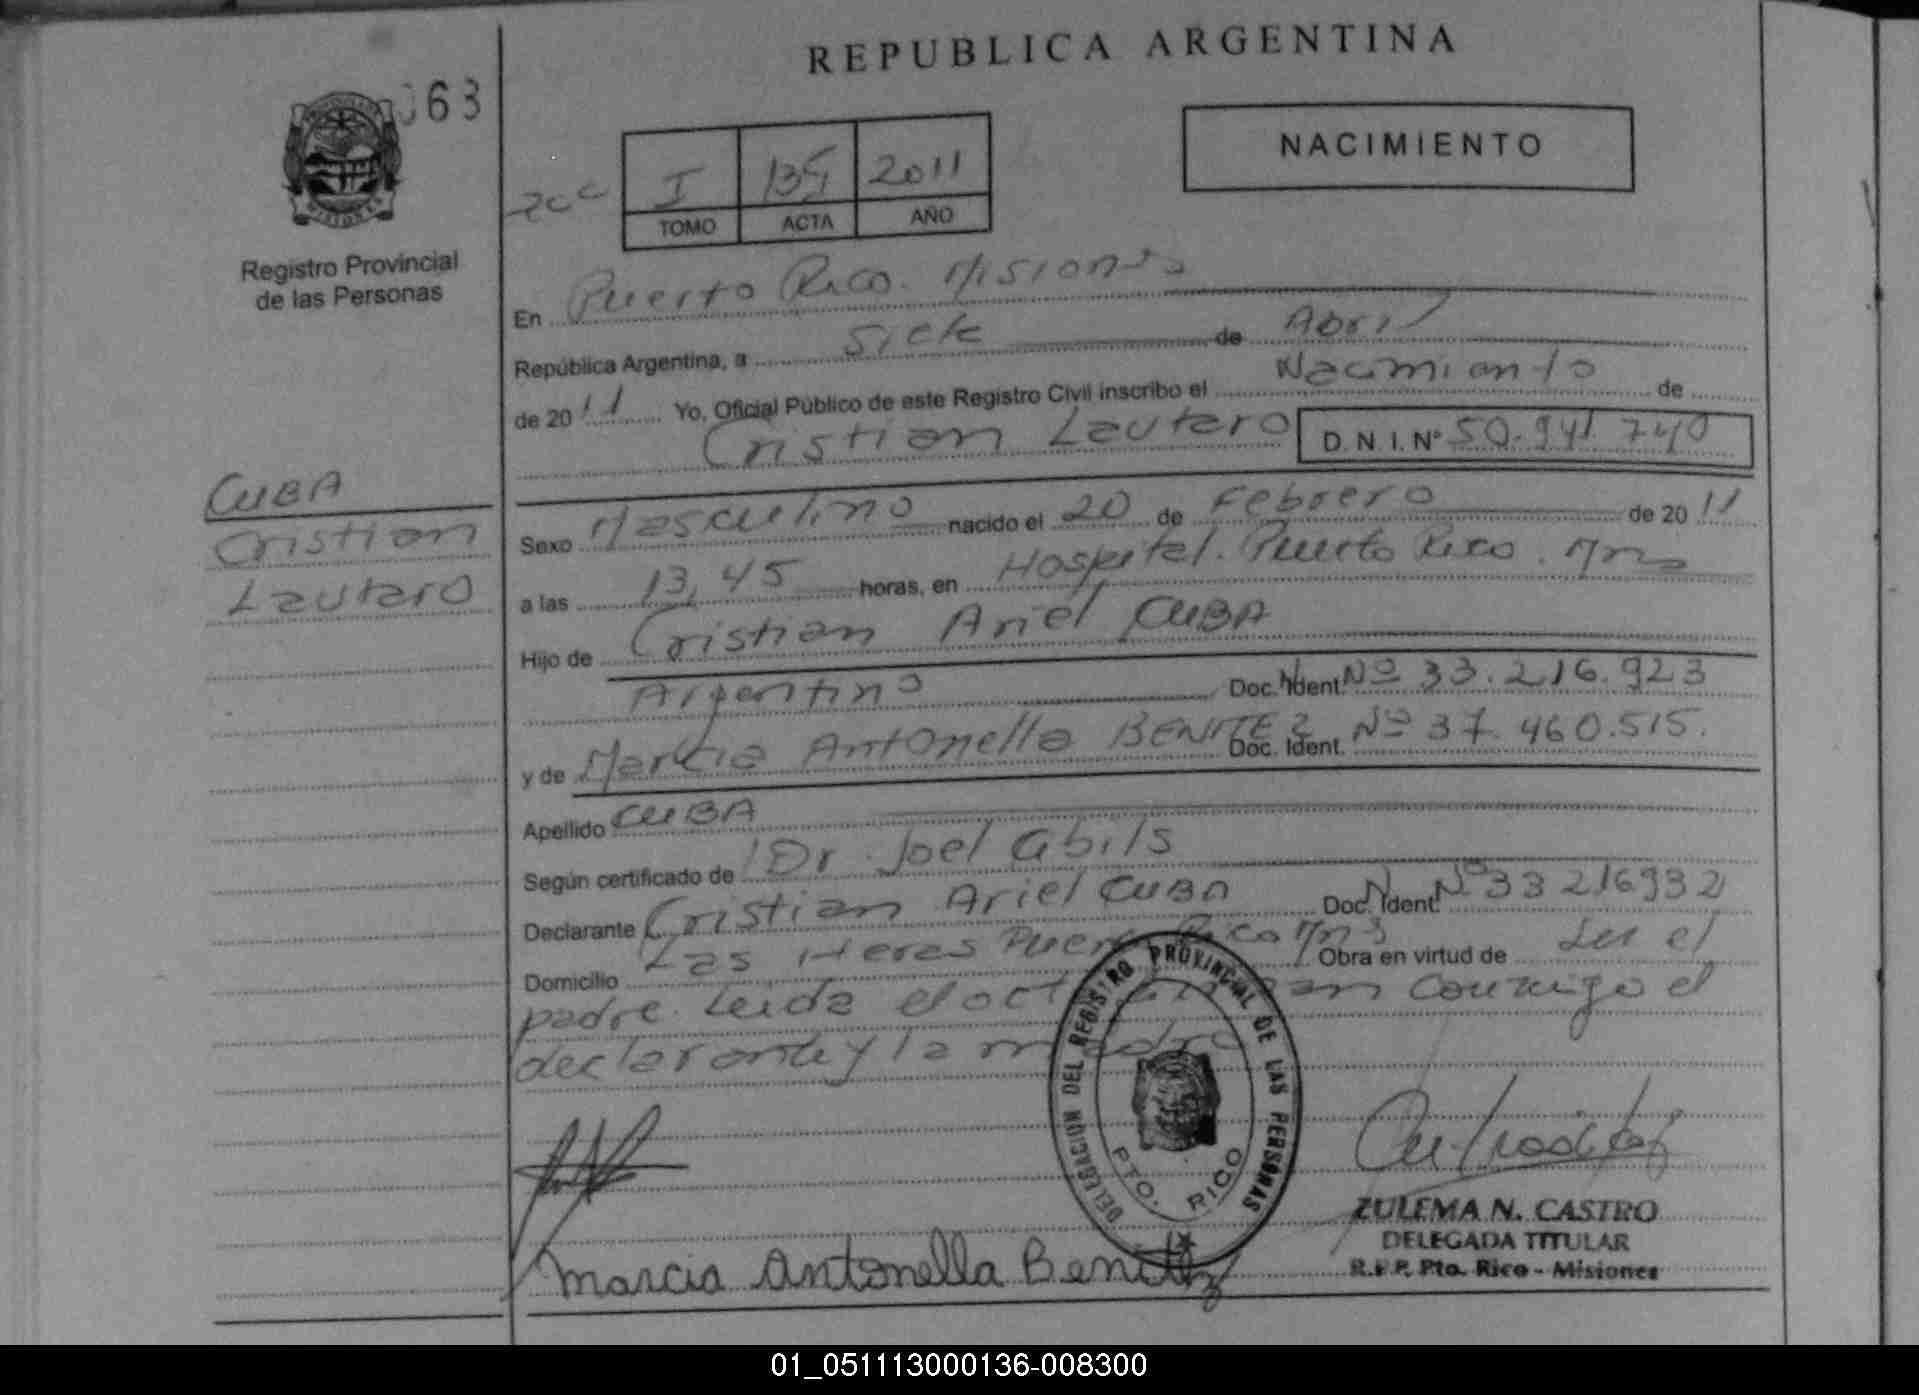 REPUBLICA ARGENTINA
63
PROVINCIA
MISIONES
Registro Provincial
de las Personas
NACIMIENTO
I 2011
TOMO ACTA AÑO
En Puerto Rico. Misiones
República Argentina, a siete de Abril
de 2011 Yo, Oficial Público de este Registro Civil inscribo el Nacimiento de
Cristian Lautaro D.N.I.Nº 50.941.740
CUBA
Cristian
Lautaro
Sexo Masculino nacido el 20 de Febrero de 2011
a las 13,45 horas, en Hospital. Puerto Rico. Mnes
Hijo de Cristian Ariel CUBA
Argentino Doc. Ident. Nº 33.216.923
y de Marcia Antonella BENITEZ Doc. Ident. Nº 37.460.515.
Apellido CUBA
Según certificado de Dr. Joel
Declarante Cristian Ariel CUBA Doc. Ident. Nº 33 216932
Domicilio Las Heras Puerto Rico Mns Obra en virtud de ser el
padre. Leida el conmigo el
declarante y la madre
DELEGACION DEL REGISTRO PROVINCIAL DE LAS PERSONAS
PTO. RICO
Marcia Antonella Benitez
ZULEMA N. CASTRO
DELEGADA TITULAR
R.P.P. Pto. Rico - Misiones
01_051113000136-008300